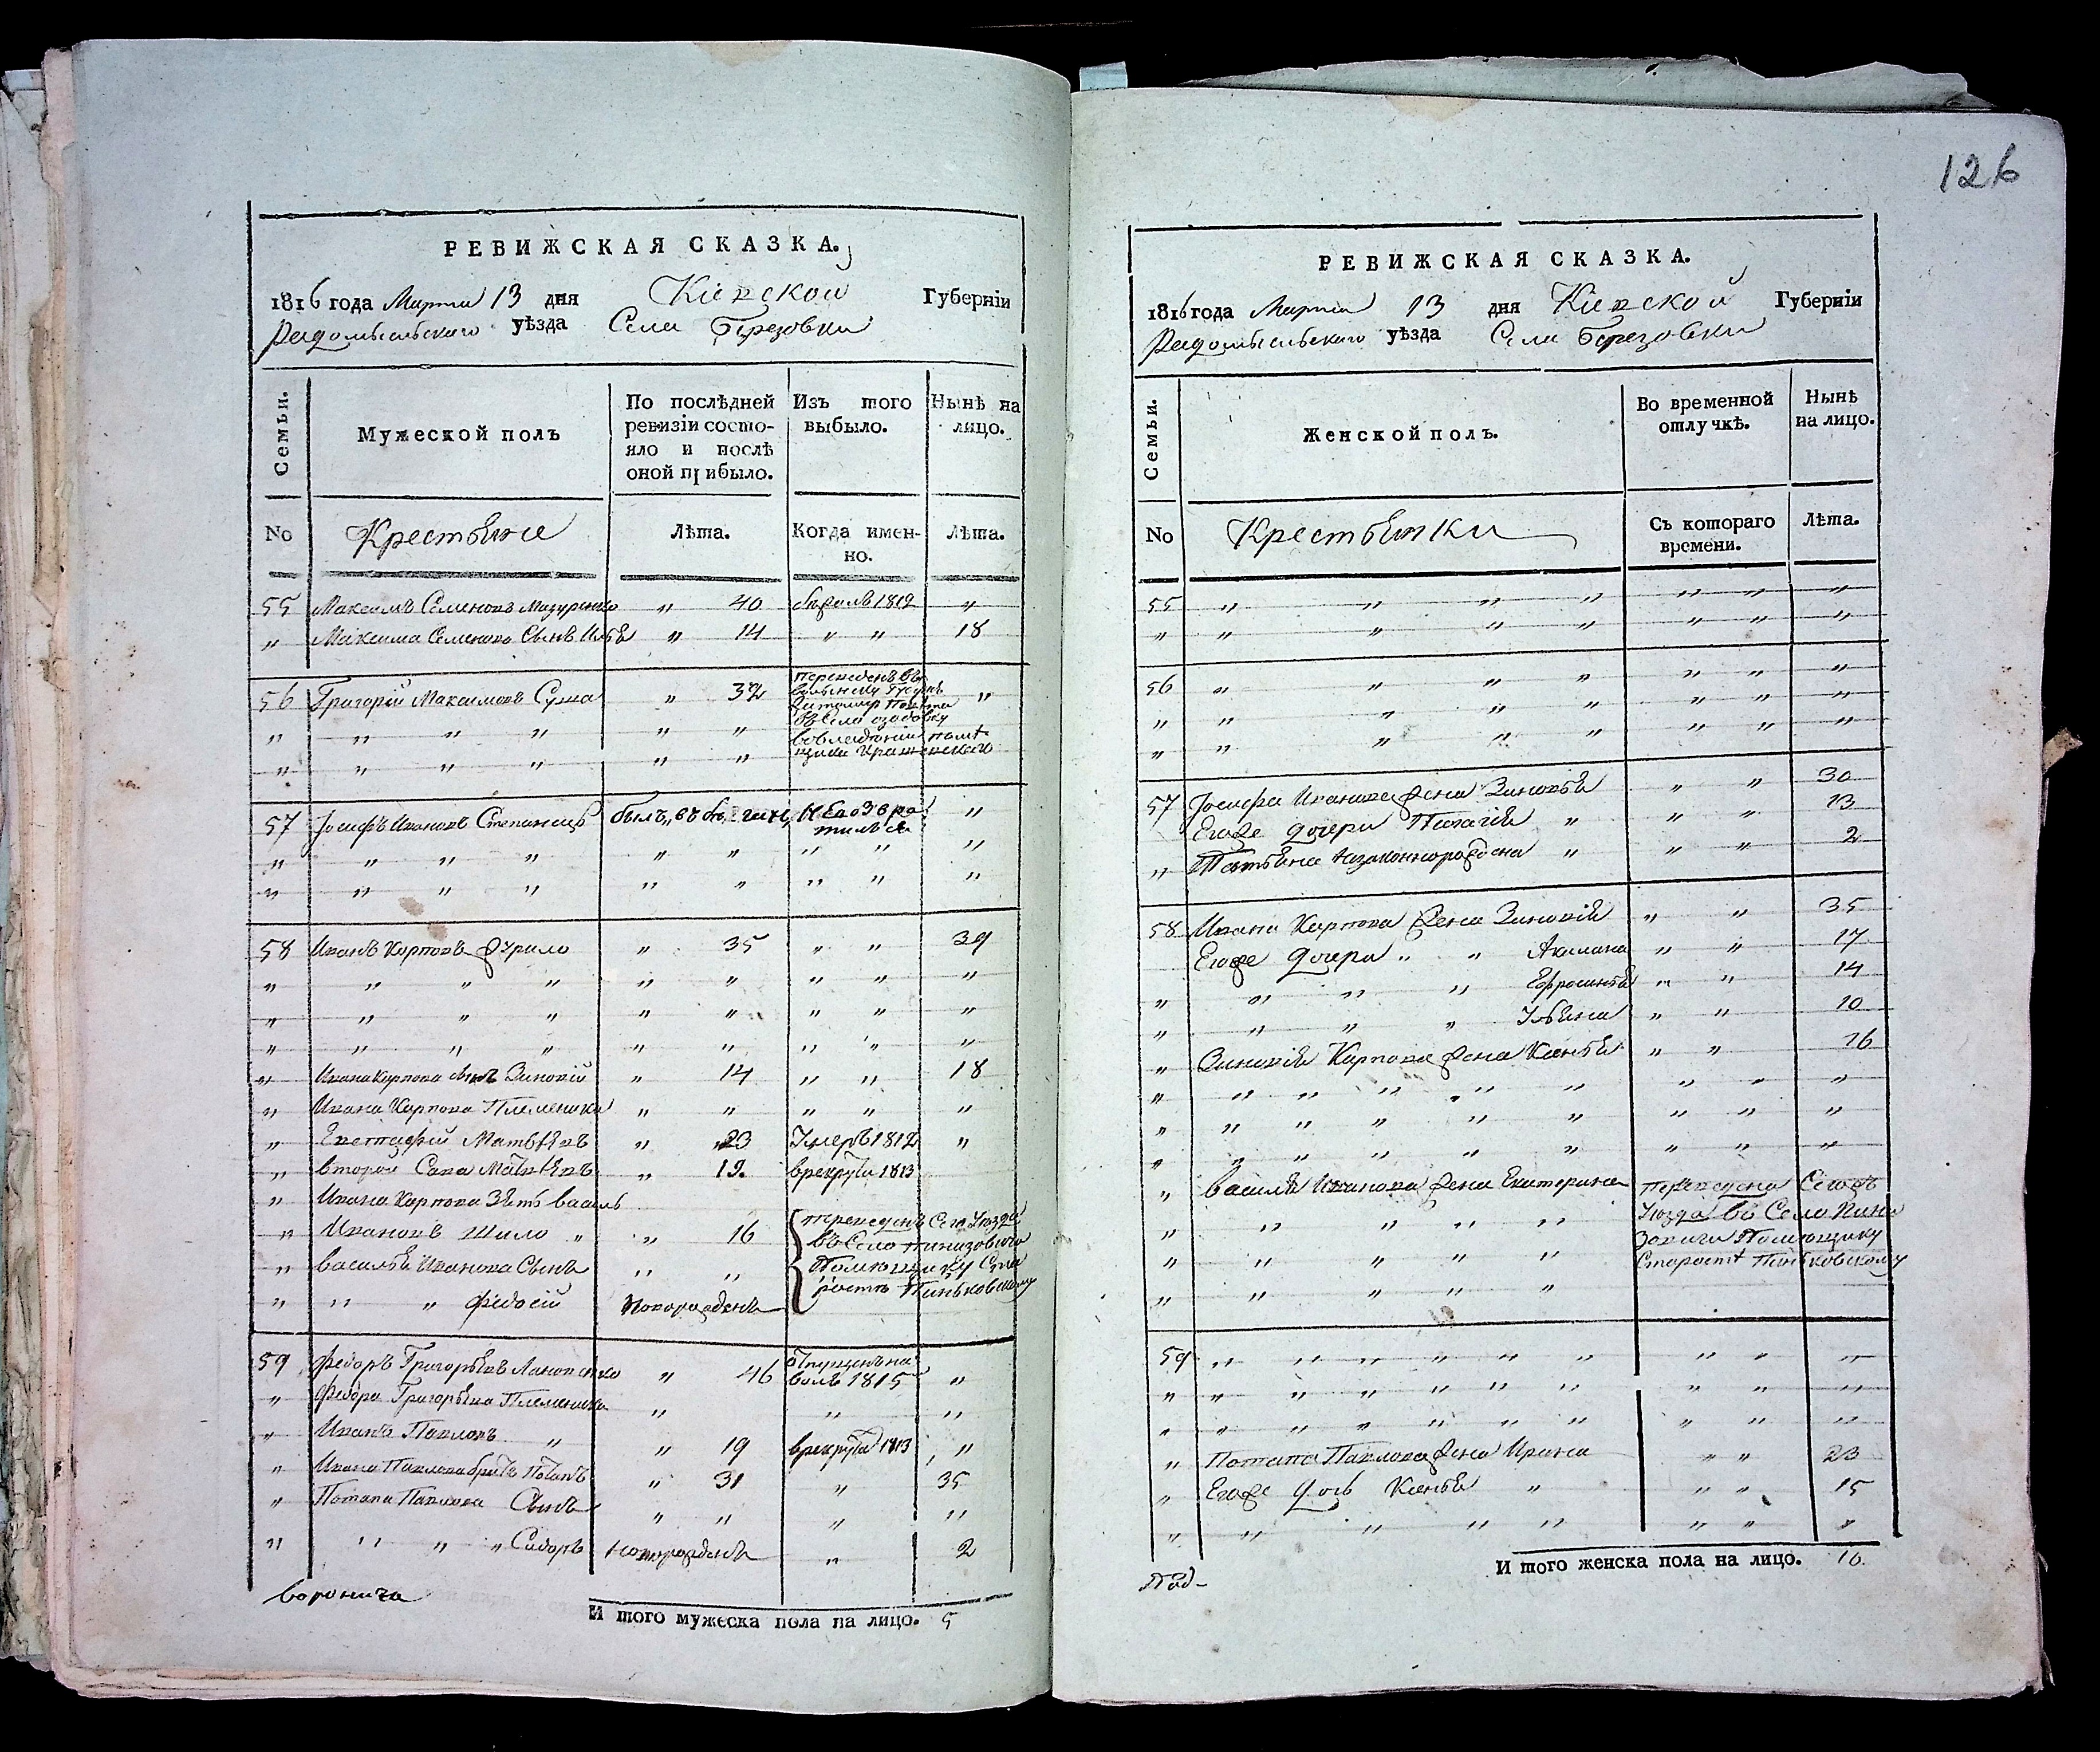 126
РЕВИЖСКАЯ СКАЗКА.
1816 года Марта 13 дня Кіевской Губерніи
Радомысльскаго уѣзда Села Березовки
Семьи.
Мужеской полъ
По послѣдней ревизіи состо-
яло и послѣ
оной прибыло.
Изъ того
выбыло.
Нынѣ на
лицо.
No
Крестьяне
Лѣта.
Когда имен-
но.
Лѣта.
55 Максимъ Семеновъ Мазуренко " 40 1812 "
" Максима Семенова Сынъ Илья " 14 " " 18
56 Григорій Максимовъ Суша " 32 переведенъ въ
волынску Губер "
Житомир Повета
" " " " " " въ Село
во владении поме
" " " " " " щика
57 Іосифъ Ивановъ Степанецъ былъ въ бегахъ, Невозвра "
тился
" " " " " " " " "
" " " " " " " " "
58 Иванъ Карповъ " 35 " " 39
" " " " " " " " "
" " " " " " " " "
" " " " " " " " "
" Ивана Карпова сынъ Зиновій " 14 " " 18
" Ивана Карпова Племеники " " " " "
" Евстафій Матвѣевъ " 23 Умеръ 1812 "
" второй Сава Матвѣевъ " 12. врекруты 1813
" Ивана Карпова Зять василь
" Ивановъ Шило " " 16 переведенъ Сего Уезда
въ Село
" василья Иванова Сынъ " " Помющику Ста
росте Паньковскому
" " " Федосій Новорожденъ
59 Федоръ Григорьевъ " 46 Отпущенъ на
волю 1815 "
" Федора Григорьева Племеники " " "
" Иванъ Павловъ " " 19 врекруты 1813 "
" Ивана Павлова братъ Потапъ " 31 " 35
" Потапа Павлова Сынъ " " " "
" " " " Сидоръ Новорожденъ " 2
воронича
И того мужеска пола на лицо. 5
РЕВИЖСКАЯ СКАЗКА.
1816 года Марта 13 дня Кіевской Губерніи
Радомысльскаго уѣзда Села Березовки
Семьи.
Женской полъ.
Во временной
отлучкѣ.
Нынѣ
на лицо.
No
Крестьянки
Съ котораго
времени.
Лѣта.
55 " " " " " " "
" " " " " " " "
56 " " " " " " "
" " " " " " " "
" " " " " " " "
57 Іосифа Иванова жена Зиновья " " 30
Егоже дочери Палагія " " " 13
" Татьяна незаконнорождена " " " 2
58 Ивана Карпова жена Зиновія " " 35
Егоже дочери " " Акилина " " 17
" " " " Ефросинья " " 14
" " " " Ульяна " " 10
" Зиновія Карпова жена Ксенья " " 16
" " " " " " " " "
" " " " " " " " "
" " " " " " " " "
" василья Иванова жена Екатерина переведена Сегожъ
" " " " " Уезда въ Село Пини
зовичи Помющику
" " " " " Старосте Паньковскому
" " " " "
59 " " " " " " " " "
" " " " " " " " " "
" " " " " " " " " "
" Потапа Павлова жена Ирина " " 23
" Егоже дочь Ксенья " " " 15
" " " " " " " "
И того женска пола на лицо. 10.
Под-